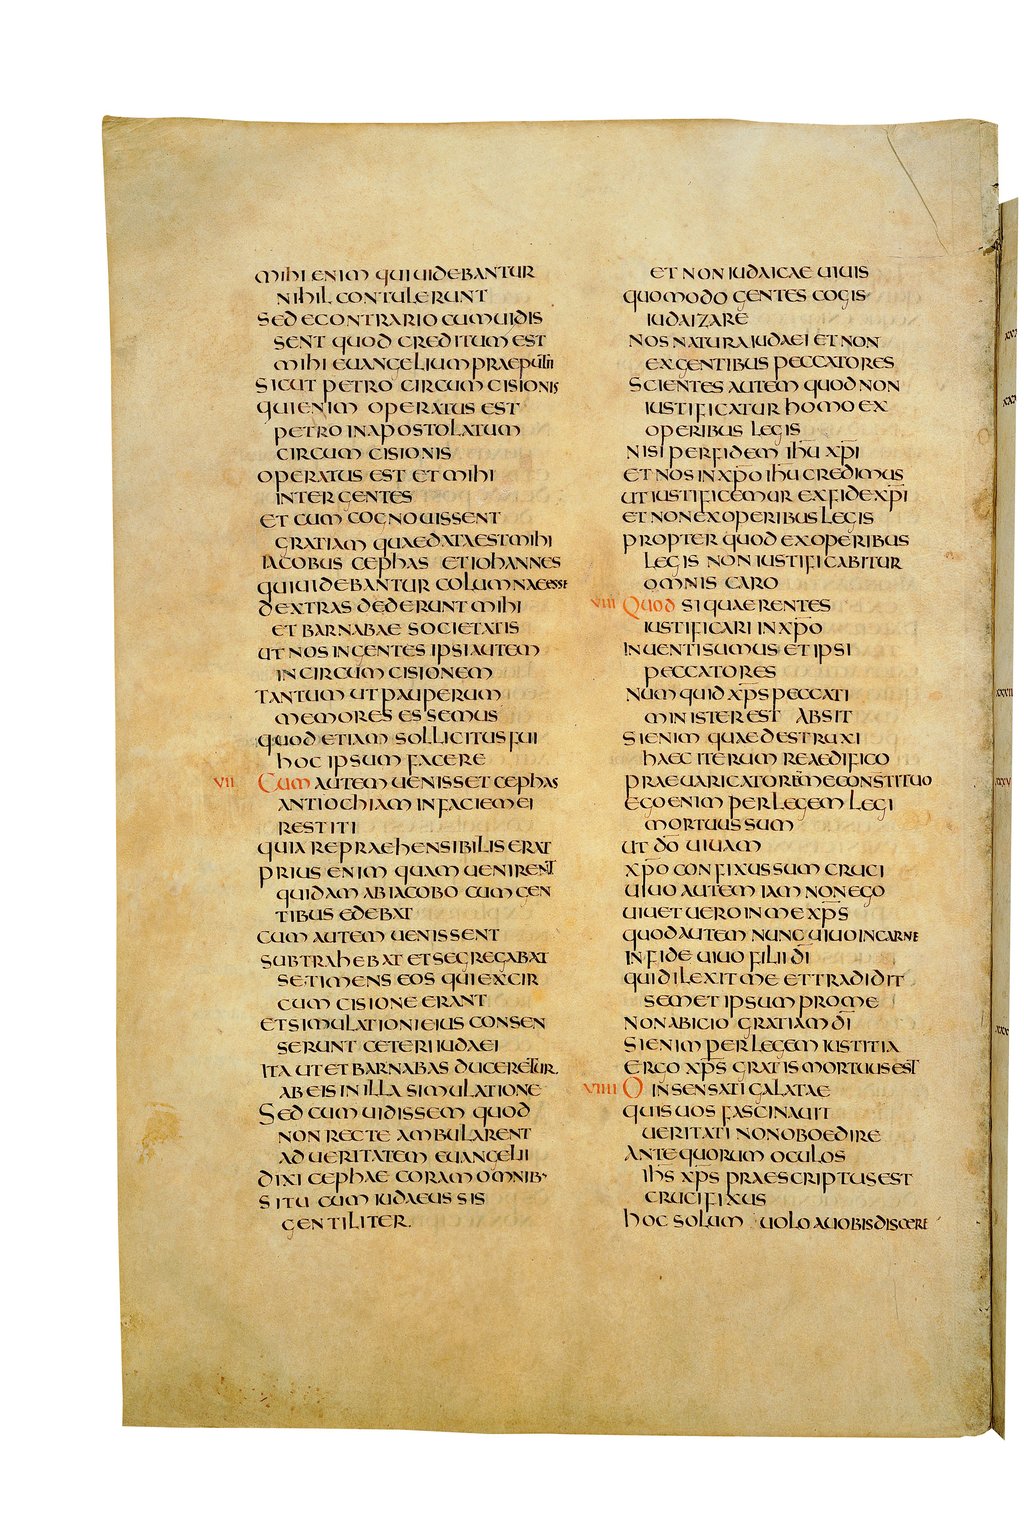 mihi enim qui uidebantur
nihil contulerunt
sed econtrario cum uidis
sent quod creditum est
mihi euangelium praeputii
sicut petro circumcisionis
qui enim operatus est
petro in apostolatum
circumcisionis
operatus est et mihi
inter gentes
et cum cognouissent
gratiam quae data est mihi
iacobus cephas et iohannes
qui uidebantur columnae esse
dextras dederunt mihi
et barnabae societatis
ut nos in gentes ipsi autem
in circumcisionem
tantum ut pauperum
memores essemus
quod etiam sollicitus fui
hoc ipsum facere
VII Cum autem uenisset cephas
antiochiam in faciem ei
restiti
quia repraehensibilis erat
prius enim quam uenirent
quidam ab iacobo cum gen
tibus edebat
cum autem uenissent
subtrahebat et segregabat
se timens eos qui ex cir
cumcisione erant
et simulationi eius consen
serunt ceteri iudaei
ita ut et barnabas duceretur
ab eis in illa simulatione
Sed cum uidissem quod
non recte ambularent
ad ueritatem euangelii
dixi cephae coram omnib·
si tu cum iudaeus sis
gentiliter
et non iudaicae uiuis
quomodo gentes cogis
iudaizare
nos natura iudaei et non
ex gentibus peccatores
scientes autem quod non
iustificatur homo ex
operibus legis
nisi per fidem ihu̅ xp̅i
et nos in xp̅o ihu̅ credimus
ut iustificemur ex fide xp̅i
et non ex operibus legis
propter quod ex operibus
legis non iustificabitur
omnis caro
VIII Quod si quaerentes
iustificari in xp̅o
inuenti sumus et ipsi
peccatores
num quid xp̅s peccati
minister est absit
si enim quae destruxi
haec iterum reaedifico
praeuaricatorem me constituo
ego enim per legem legi
mortuus sum
ut do̅ uiuam
xp̅o confixus sum cruci
uiuo autem iam non ego
uiuet uero in me xp̅s
quod autem nunc uiuo in carne
in fide uiuo filii di̅
qui dilexit me et tradidit
semet ipsum pro me
non abicio gratiam di̅
si enim per legem iustitia
ergo xp̅s gratis mortuus est
VIIII O insensati galatae
quis uos fascinauit
ueritati non oboedire
ante quorum oculos
ihs̅ xp̅s praescriptus est
crucifixus
hoc solum uolo a uobis discere